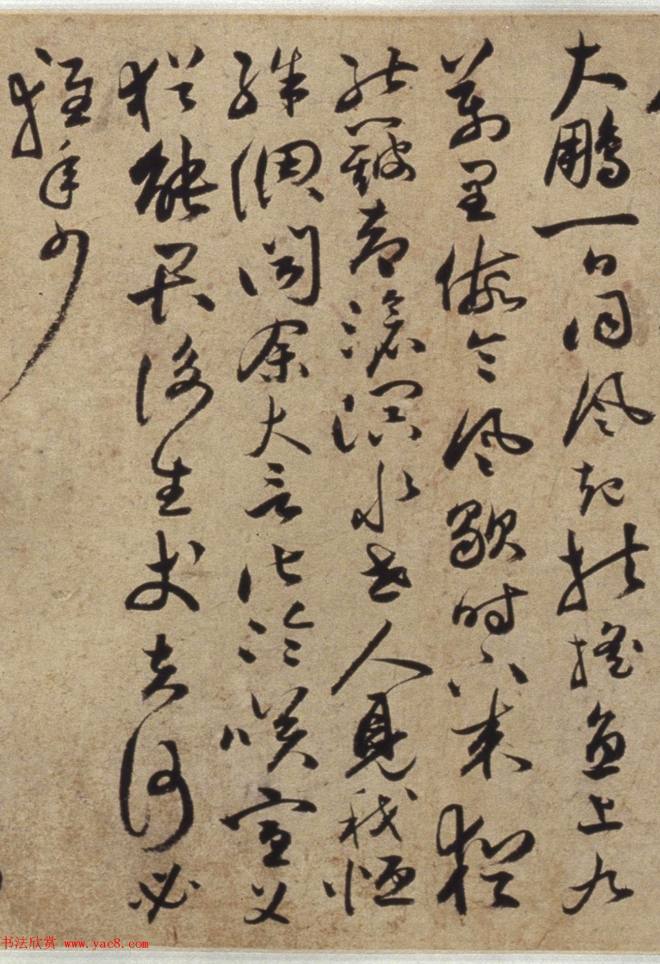 大鵬一日同風起扶搖直上九
萬里假令風歇時下来猶
能簸却滄溟水世人見我恒
殊調聞余大言皆冷咲宣父
猶能畏後生丈夫何必
輕年少
书法欣赏 www.yac8.com